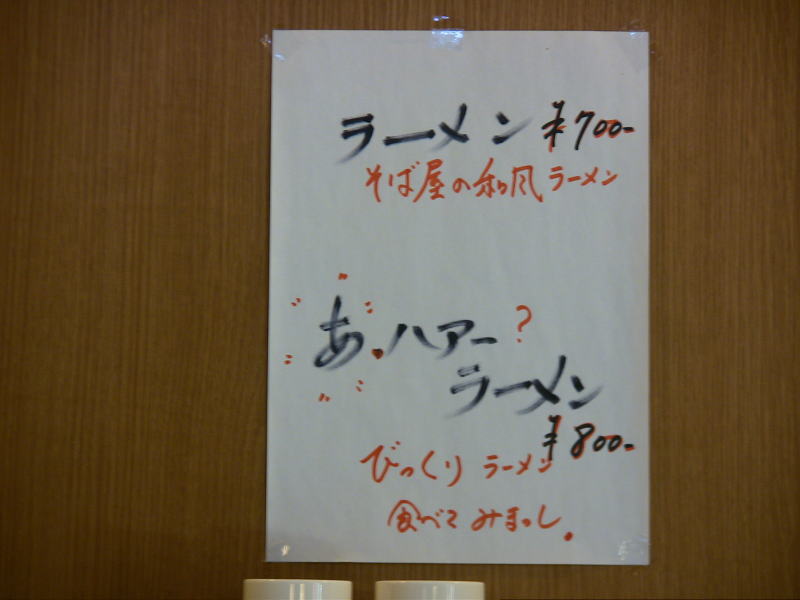 ラーメン ¥700-
そば屋の和風ラーメン
あ.ハアー?
ラーメン
¥800-
びっくりラーメン
食べてみまっし.